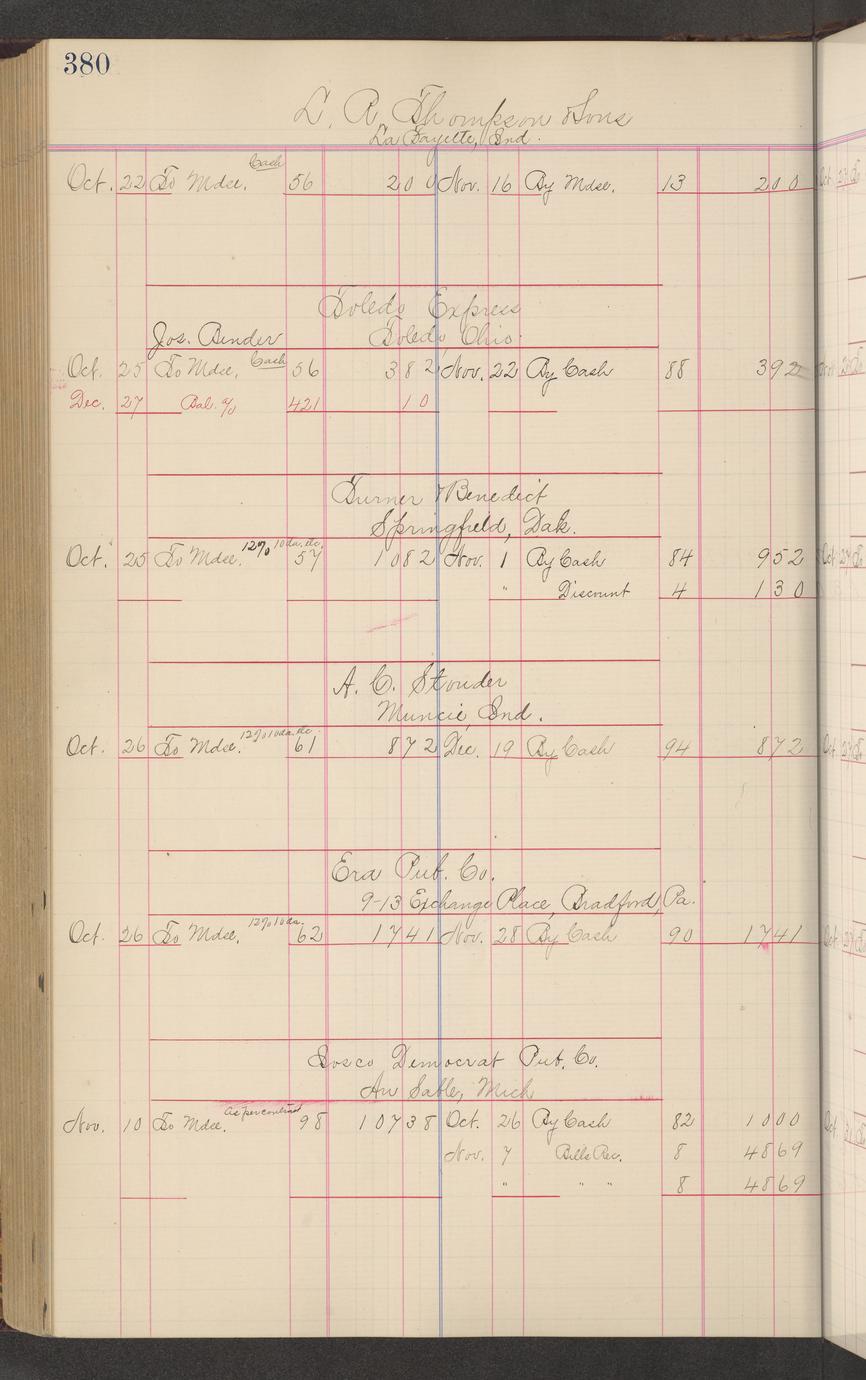 380
L. R. Thompson & Sons
La Fayette, Ind.
Cash
Oct. 22 To Mdse. 56 200 Nov. 16 By Mdse. 13 200
Toledo Express
Jos. Bender Toledo, Ohio.
Oct. 25 To Mdse. Cash 56 382 Nov. 22 By Cash 88 392
Dec. 27 Bal. % 421 10
Turner & Benedict
Springfield, Dak.
Oct. 25 To Mdse. 12% 10 da. etc. 57 1082 Nov. 1 By Cash 84 952
" Discount 4 130
A. C. Stouder
Muncie, Ind.
Oct. 26 To Mdse. 12% 10 da. etc. 61 872 Dec. 19 By Cash 94 872
Era Pub. Co.
9-13 Exchange Place, Bradford, Pa.
Oct. 26 To Mdse. 12% 10 da. 62 1741 Nov. 28 By Cash 90 1741
Iosco Democrat Pub. Co.
Au Sable, Mich
Nov. 10 To Mdse. as per contract 98 10738 Oct. 26 By Cash 82 1000
Nov. 7 Bills Rec. 8 4869
" " " 8 4869